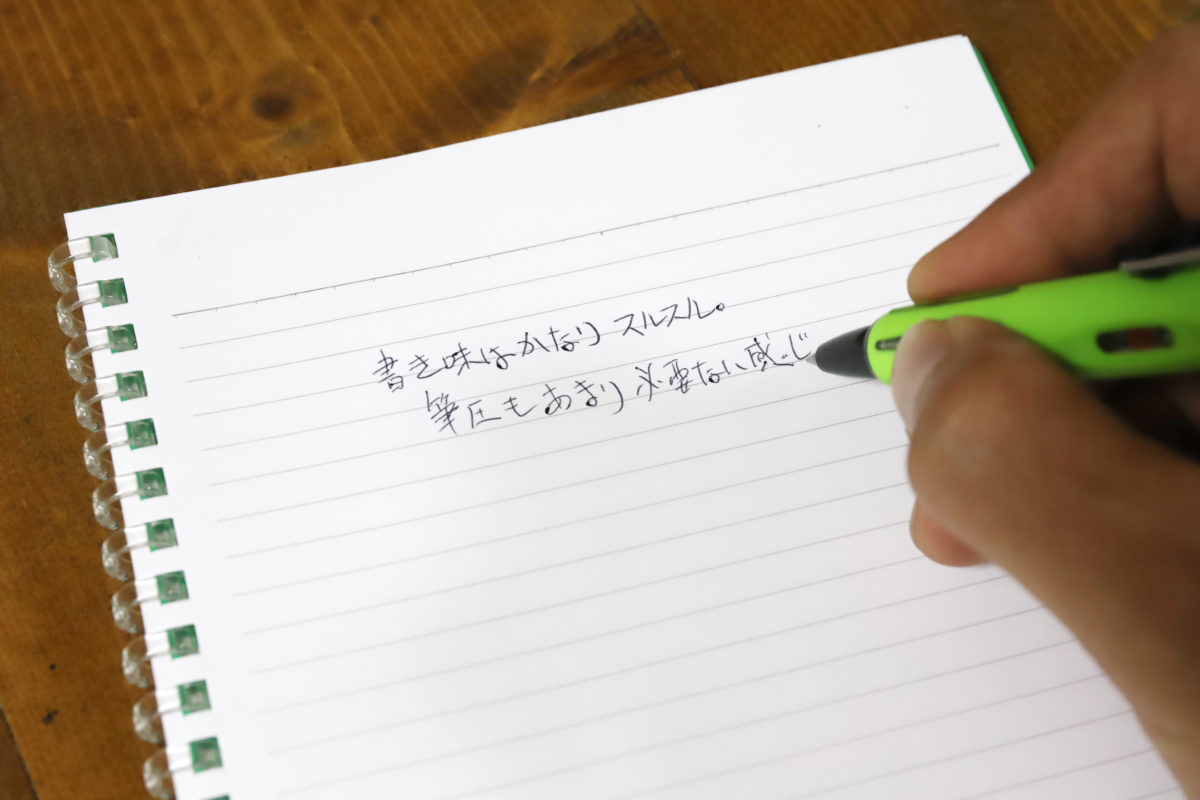 書き味はかなりスルスル。
筆圧もあまり必要ない感じ